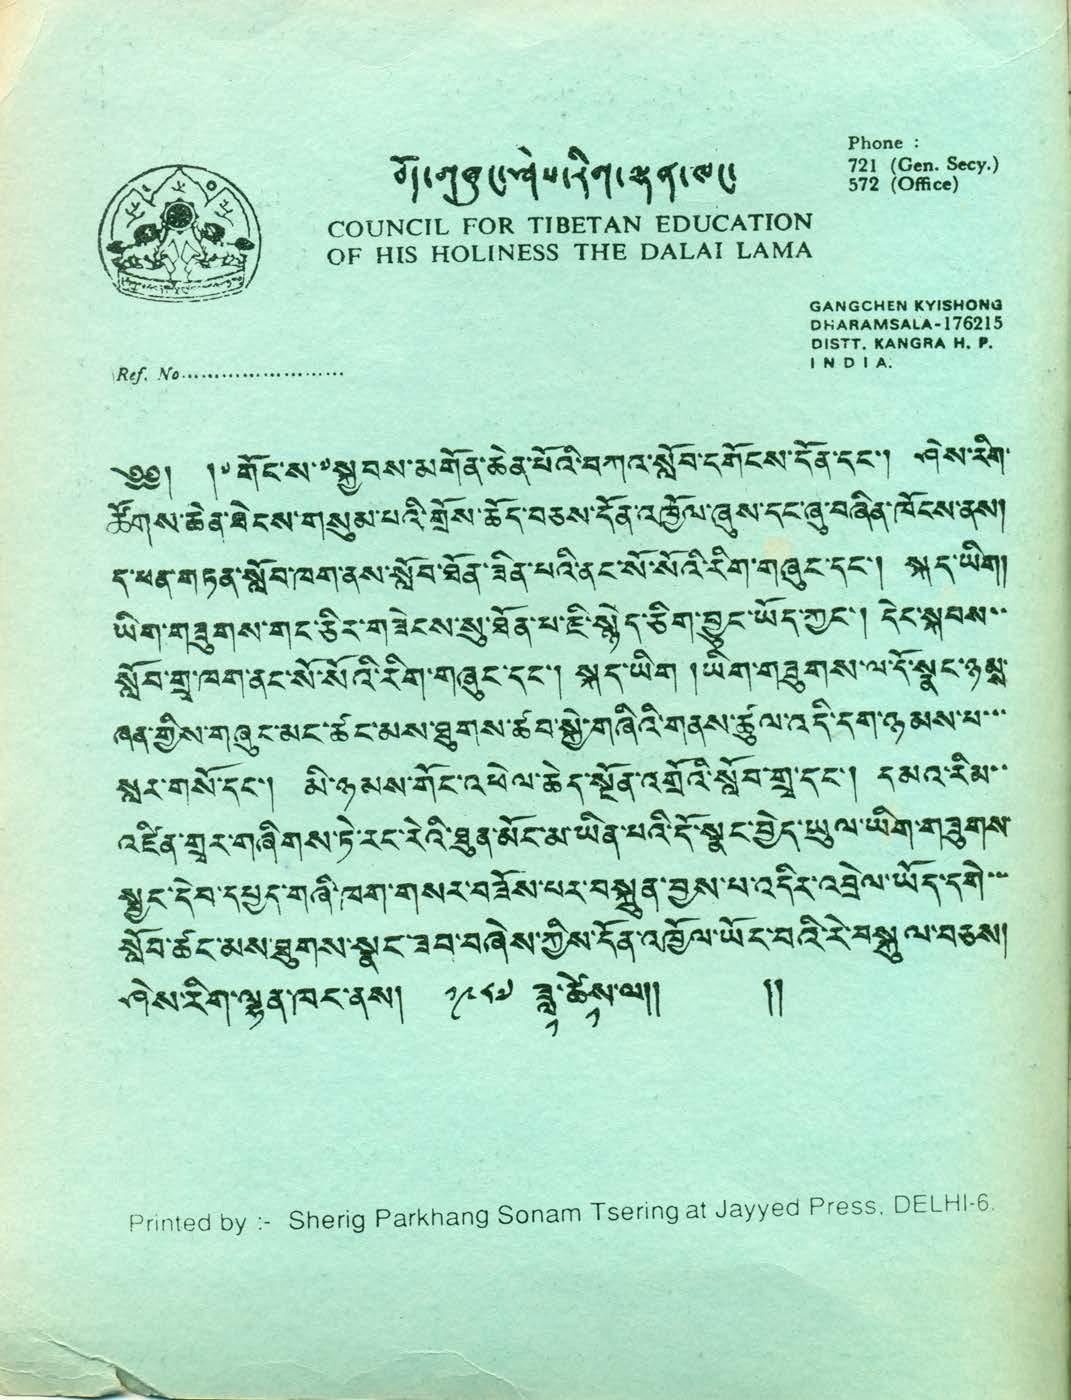 Phone :
721 (Gen. Secy.)
572 (Office)
COUNCIL FOR TIBETAN EDUCATION
OF HIS HOLINESS THE DALAI LAMA
GANGCHEN KYISHONG
DHARAMSALA-176215
DISTT. KANGRA H. P.
INDIA.
Ref. No........................
༄༅། །༧གོང་ས་༧སྐྱབས་མགོན་ཆེན་པོའི་བཀའ་སློབ་དགོངས་དོན་དང་། ཤེས་རིག་
ཚོགས་ཆེན་ཐེངས་གསུམ་པའི་གྲོས་ཆོད་བཅས་དོན་འཁྱོལ་ཞུས་དང་ཞུ་བཞིན་ཁོངས་ནས།
ད་ཕན་གཏན་སློབ་ཁག་ནས་སློབ་ཐོན་ཟིན་པའི་ནང་སོ་སོའི་རིག་གཞུང་དང་། སྐད་ཡིག།
ཡིག་གཟུགས་གང་ཅིར་གཟེངས་སུ་ཐོན་པ་ཇི་སྙེད་ཅིག་བྱུང་ཡོད་ཀྱང་། དེང་སྐབས་
སློབ་གྲྭ་ཁག་ནང་སོ་སོའི་རིག་གཞུང་དང་། སྐད་ཡིག །ཡིག་གཟུགས་ལ་དོ་སྣང་ཉམས་
ཞན་གྱིས་གཞུང་མང་ཚང་མས་ཐུགས་ཚབ་སྐྱེ་གཞིའི་གནས་ཚུལ་འདི་དག་ཉམས་པ་
སླར་གསོ་དང་། མི་ཉམས་གོང་འཕེལ་ཆེད་སྔོན་འགྲོའི་སློབ་གྲྭ་དང་། དམའ་རིམ་
འཛིན་གྲྭར་གཞིགས་ཏེ་རང་རེའི་ཐུན་མོང་མ་ཡིན་པའི་དོ་སྣང་བྱེད་ཡུལ་ཡིག་གཟུགས་
སྦྱང་དེབ་དཔྱད་གཞི་ཁག་གསར་བཟོས་པར་བསྐྲུན་བྱས་པ་འདིར་འབྲེལ་ཡོད་དགེ་
སློབ་ཚང་མས་ཐུགས་སྣང་ཟབ་བཞེས་ཀྱིས་དོན་འཁྱོལ་ཡོང་བའི་རེ་བསྐུལ་བཅས།
ཤེས་རིག་ལྷན་ཁང་ནས། ༡༩༨༧ ཟླ་ ཚེས་ ལ།། །།
Printed by :- Sherig Parkhang Sonam Tsering at Jayyed Press, DELHI-6.